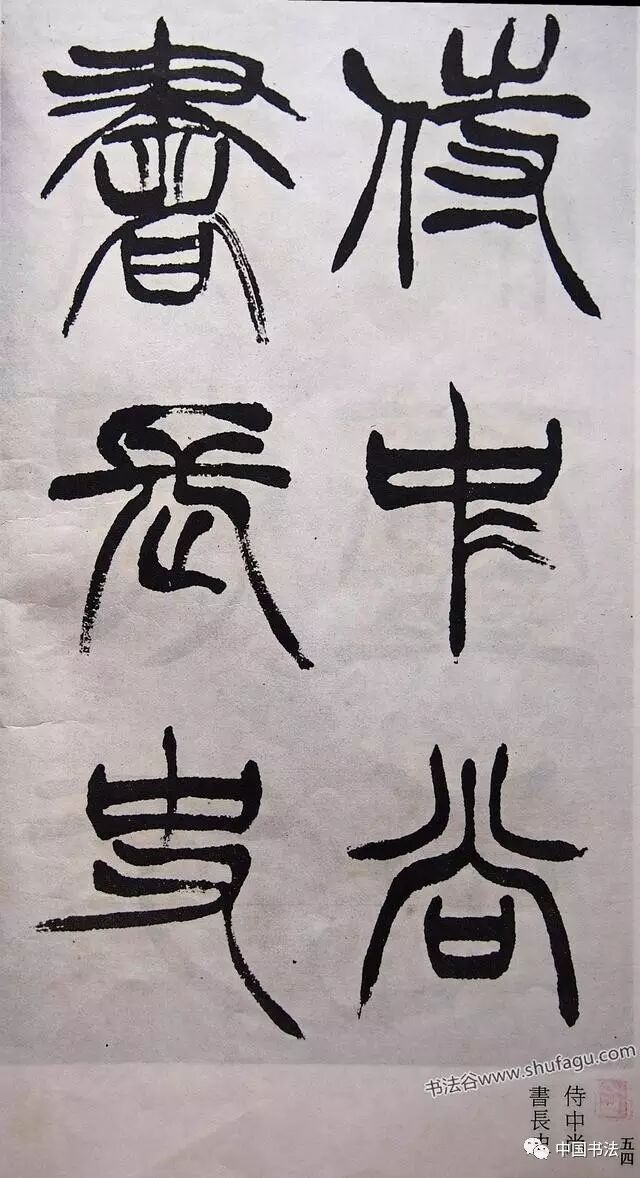 侍中尚
書長史
书法谷www.shufagu.com
五四
侍中尚
書長
中国书法